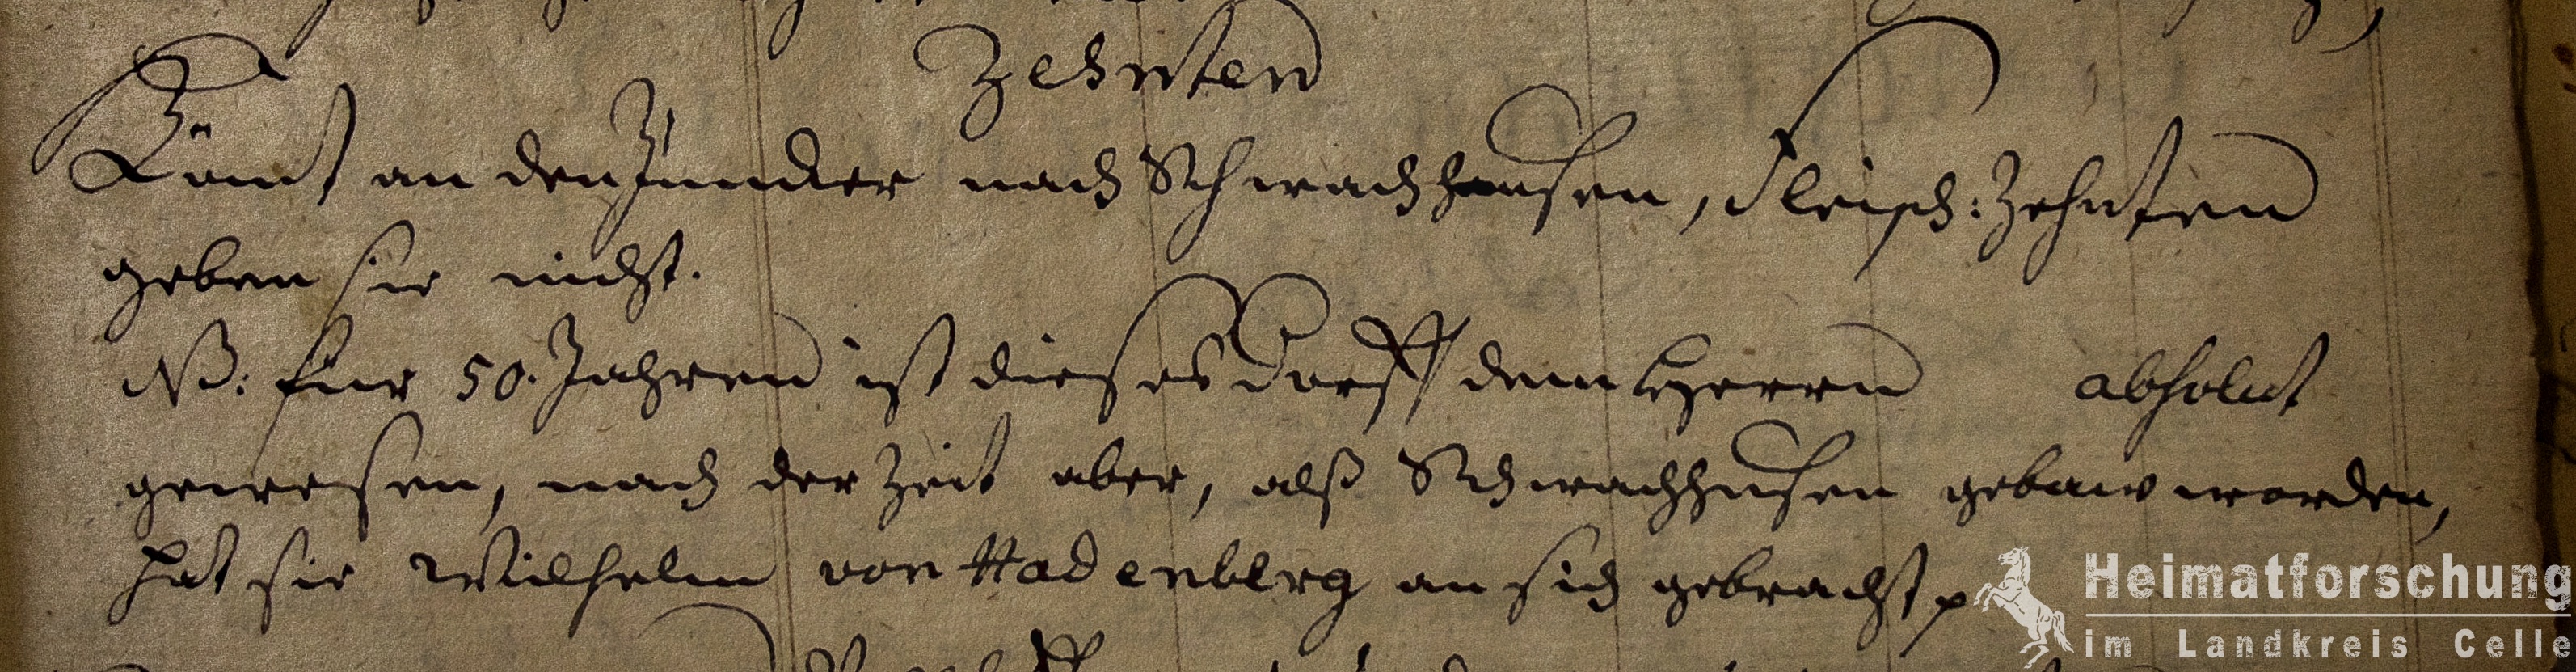 Zehnten
Kömt an den Juncker nach Schwachhausen, Fleisch: Zehnten
geben sie nicht.
NB: für 50. Jahren ist dieses Dorff dem Herrn absolut
gewesen, nach der Zeit aber, alß Schwachhusen gebaw worden,
hat sie Wilhelm von Hodenberg an sich gebracht
Heimatforschung
im Landkreis Celle